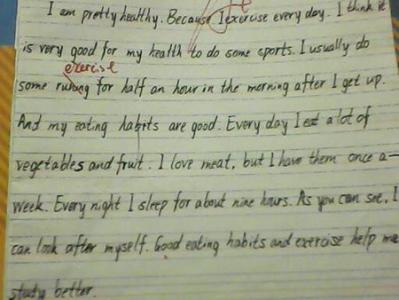 I am pretty healthy. Because I exercise every day. I think it
is very good for my health to do some sports. I usually do
exercise
some runing for half an hour in the morning after I get up.
And my eating habits are good. Every day I eat a lot of
vegetables and fruit. I love meat, but I have them once a
week. Every night I sleep for about nine hours. As you can see, I
can look after myself. Good eating habits and exercise help me
study better.